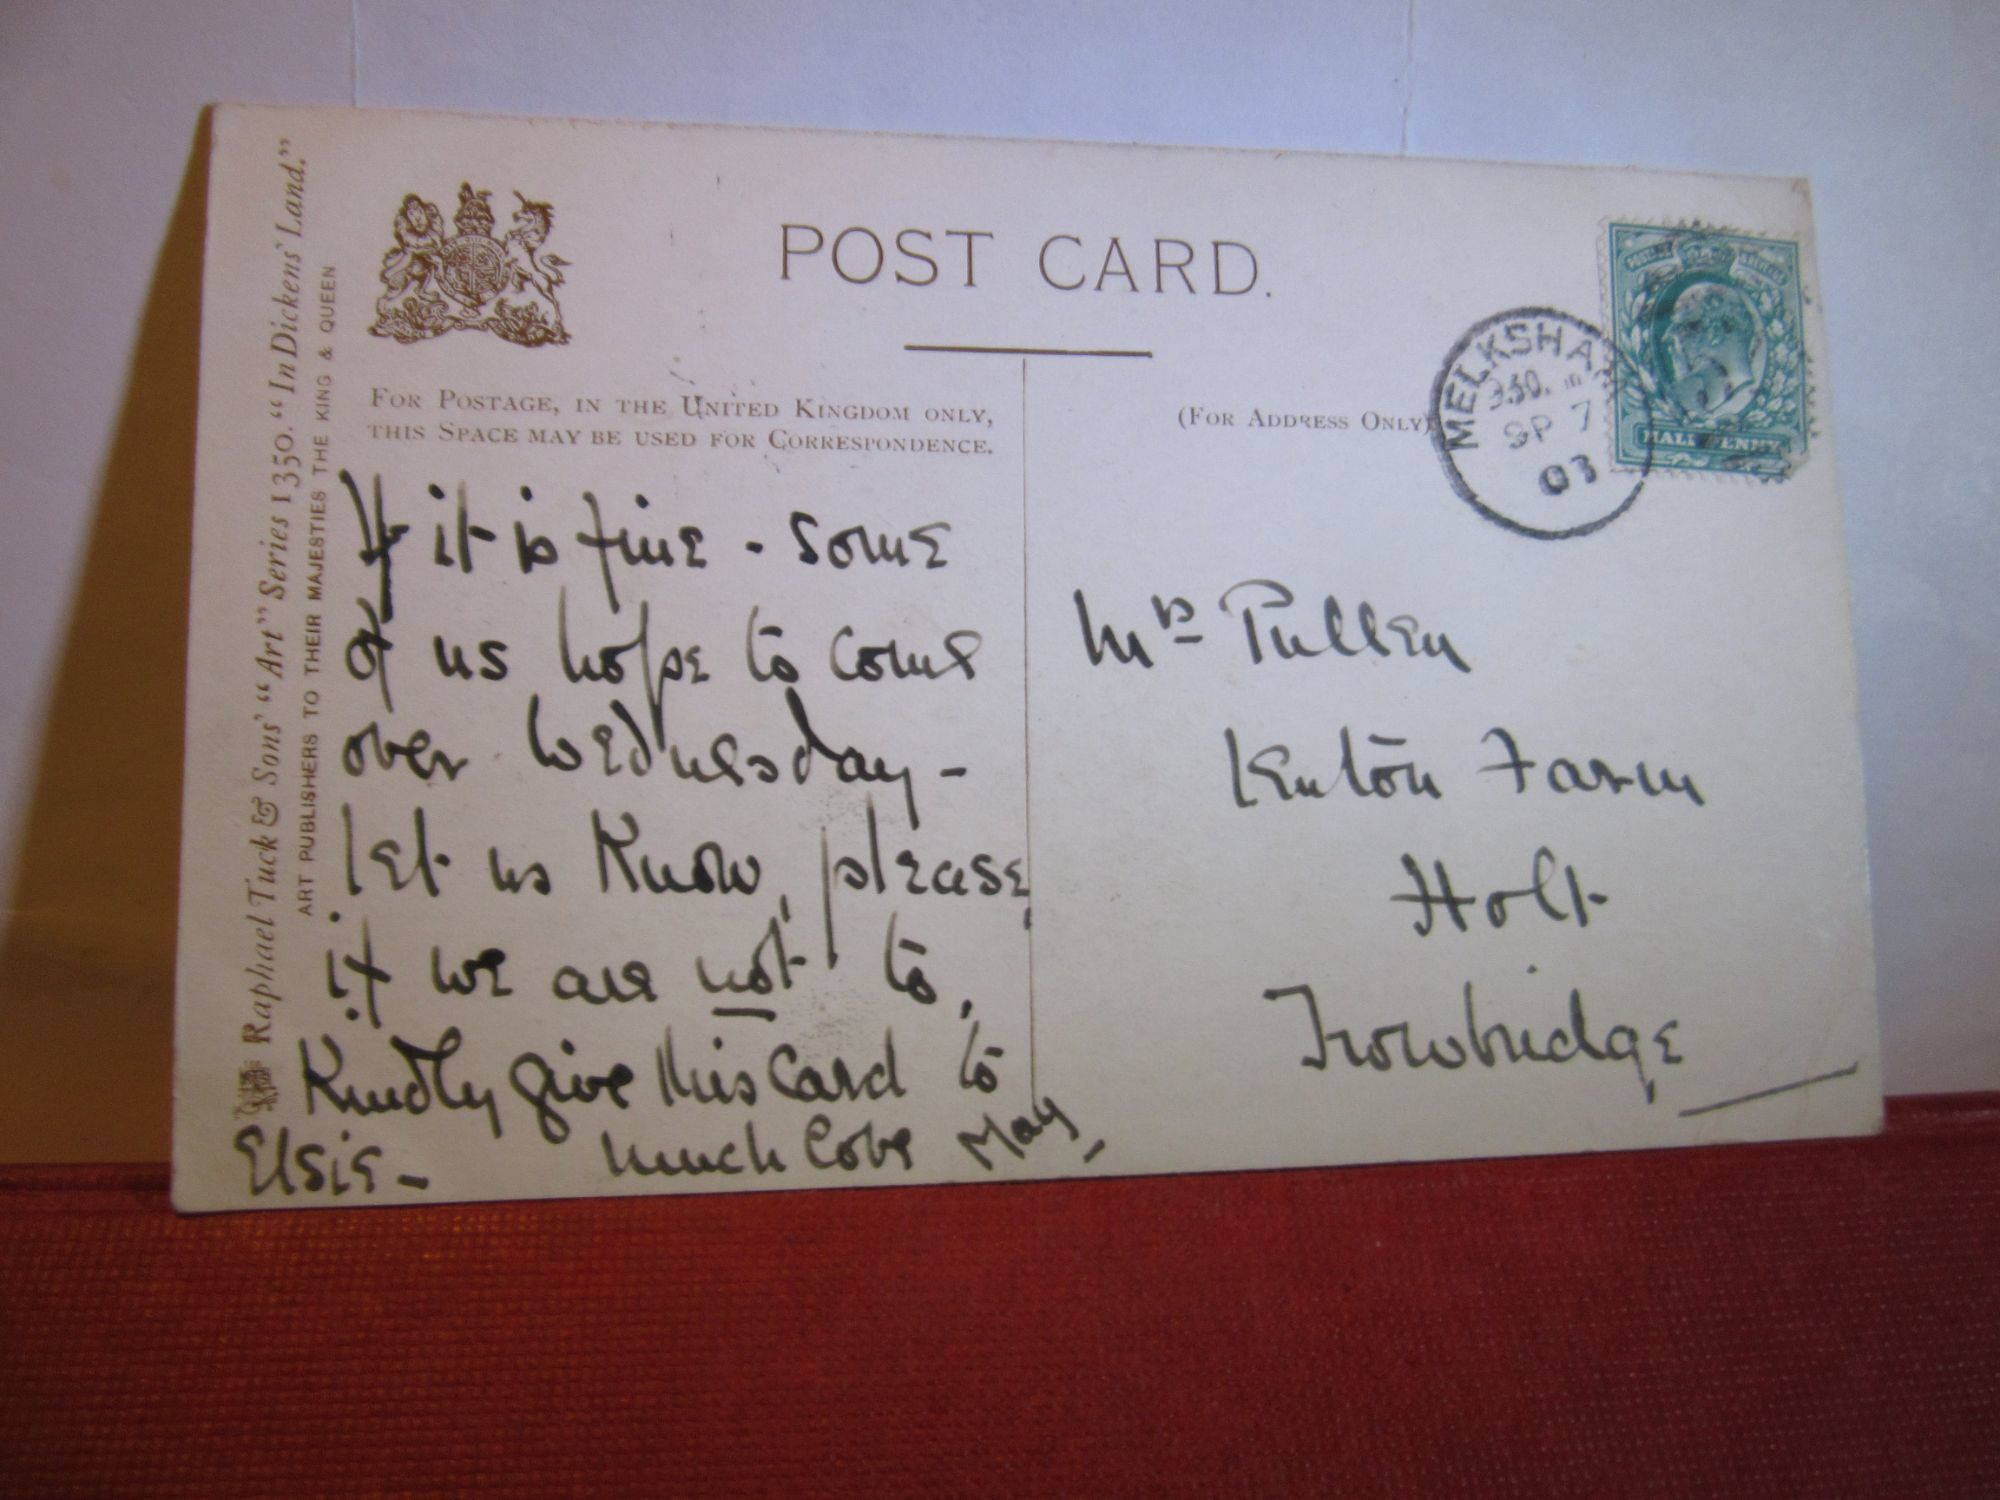 Raphael Tuck & Sons' "Art" Series 1350. "In Dickens' Land."
ART PUBLISHERS TO THEIR MAJESTIES THE KING & QUEEN
POST CARD.
FOR POSTAGE, IN THE UNITED KINGDOM ONLY,
THIS SPACE MAY BE USED FOR CORRESPONDENCE.
If it is fine - some
of us hope to come
over Wednesday -
let us know, please,
if we are not to,
Kindly give this card to
Elsie - much love May.
(FOR ADDRESS ONLY)
MELKSHAM
930.
SP 7
03
HALF PENNY
Mrs Pullen
Kenton Farm
Holt
Trowbridge